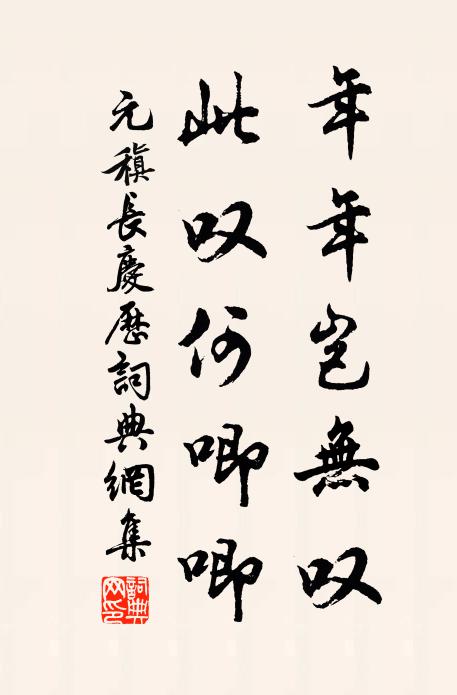 年年岂無叹
此叹何唧唧
元稹長慶歷詞典網集
詞典网印